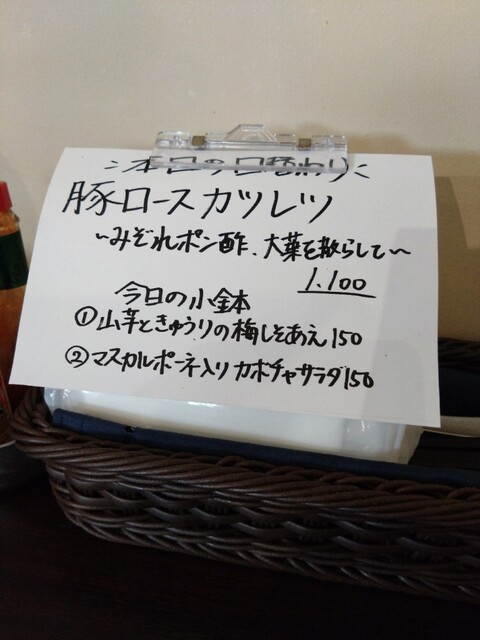 本日の日替わり
豚ロースカツレツ
〜みぞれポン酢、大葉を散らして〜
1,100
今日の小鉢
①山芋ときゅうりの梅しそあえ150
②マスカルポーネ入りカボチャサラダ150